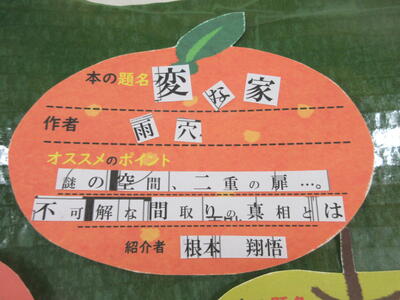 本の題名 変な家
作者 雨穴
オススメのポイント
謎の空間、二重の扉…。
不可解な間取りの真相とは
紹介者 根本 翔悟